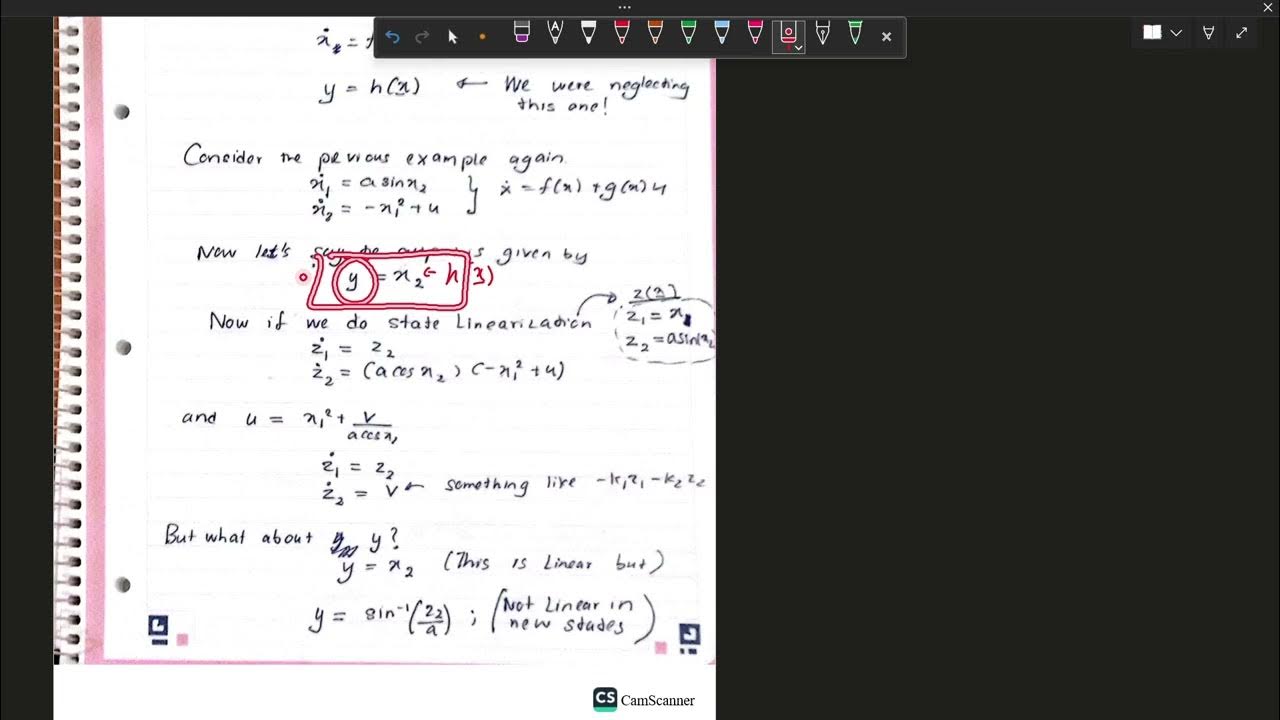 ẋ =
y = h(x) ← We were neglecting
this one!
Consider the pervious example again.
ẋ₁ = a sin x₂
ẋ₂ = -x₁² + u
} ẋ = f(x) + g(x) u
Now let's is given by
y = x₂ ← h(x)
Now if we do state Linearization
z(x)
z₁ = x₁
z₂ = a sin(x₂
ż₁ = z₂
ż₂ = (a cos x₂) (-x₁² + u)
and u = x₁² + v / a cos x₁
ż₁ = z₂
ż₂ = v ← something like -k₁z₁ - k₂z₂
But what about y?
y = x₂ (This is Linear but)
y = sin⁻¹(z₂/a) ; (Not Linear in
new states)
CS CamScanner